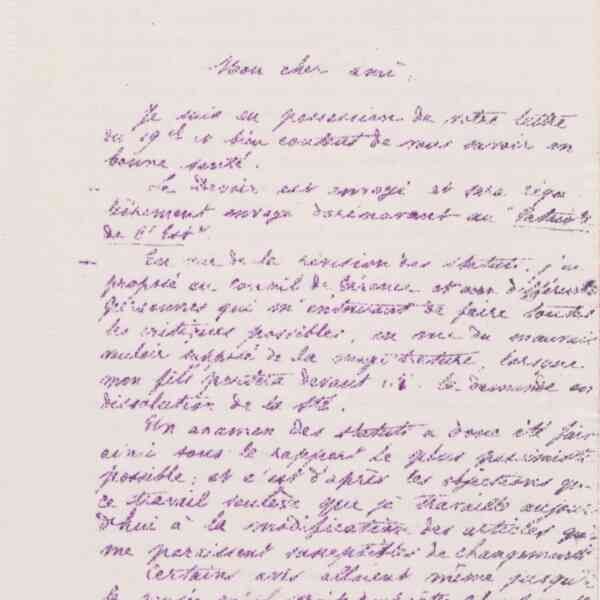 Mon cher ami,
Je suis en possession de votre lettre
du 19 et bien content de vous savoir en
bonne santé.
Le Devoir est envoyé et sera régu
lièrement envoyé dorénavant au
de l'Est
En vue de la révision des statuts, j'ai
proposé au conseil de Gérance et aux différentes
personnes qui m'entourent de faire toutes
les critiques possibles, en vue du mauvais
vouloir supposé de la magistrature, lorsque
mon fils portera devant la demande en
dissolution de la Sté.
Un examen des statuts a donc été fait
ainsi sous le rapport le plus pessimiste
possible; et c'est d'après les objections que
ce travail soulève que je travaille aujour
d'hui à la modification des articles qui
me paraissent susceptibles de changements
Certains avis allaient même jusqu'à